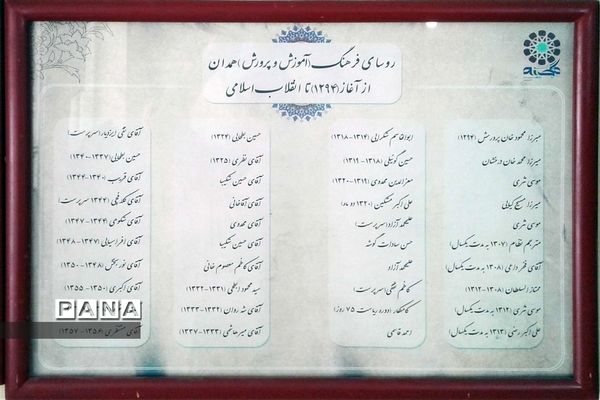 روسای فرهنگ (آموزش و پرورش) همدان
از آغاز (۱۲۹۴) تا انقلاب اسلامی
میرزا محمود خان پرورش (۱۲۹۴)
میرزا محمد خان درخشان
موسی شری
میرزا مسیح کیانی
موسی شری
مترجم نظام (۱۳۰۷ به مدت یکسال)
آقای فخر داعی (۱۳۰۸ به مدت یکسال)
ممتاز السلطان (۱۳۰۸-۱۳۱۲)
موسی شری (۱۳۱۲ به مدت یکسال)
علی اکبر رضی (۱۳۱۳ به مدت یکسال)
ابوالقاسم شکرایی (۱۳۱۴-۱۳۱۸)
حسین گونیلی (۱۳۱۸-۱۳۱۹)
معزالدین مهدوی (۱۳۱۹-۱۳۲۰)
علی اکبر مشکین (۱۳۲۰ دو ماه)
علیمحمد آزاد (سرپرست)
حسن سادات گوشه
علیمحمد آزاد
کاظم حقی (سرپرست)
کامکار (دوره ریاست ۷۵ روز)
احمد قاسمی
حسین بطحایی (۱۳۲۴)
آقای نظری (۱۳۲۵)
آقای حسین شکیبا
آقای آقاخانی
آقای مهدوی
آقای حسین شکیبا
آقای کاظم معصوم خانی
سید محمود ابطحی (۱۳۳۱-۱۳۳۲)
آقای شه روان (۱۳۳۲-۱۳۳۳)
آقای میرهاشمی (۱۳۳۳-۱۳۳۷)
آقای تقی ایزدیار (سرپرست)
حسین بطحایی (۱۳۳۷-۱۳۴۰)
آقای قریب (۱۳۴۰-۱۳۴۴)
آقای کلاه فمی (۱۳۴۴ سرپرست)
آقای شکوهی (۱۳۴۴-۱۳۴۷)
آقای افراسیابی (۱۳۴۷-۱۳۴۸)
آقای نوربخش (۱۳۴۸-۱۳۵۰)
آقای اکبری (۱۳۵۰-۱۳۵۵)
آقای منتظری (۱۳۵۶-۱۳۵۷)
PANA